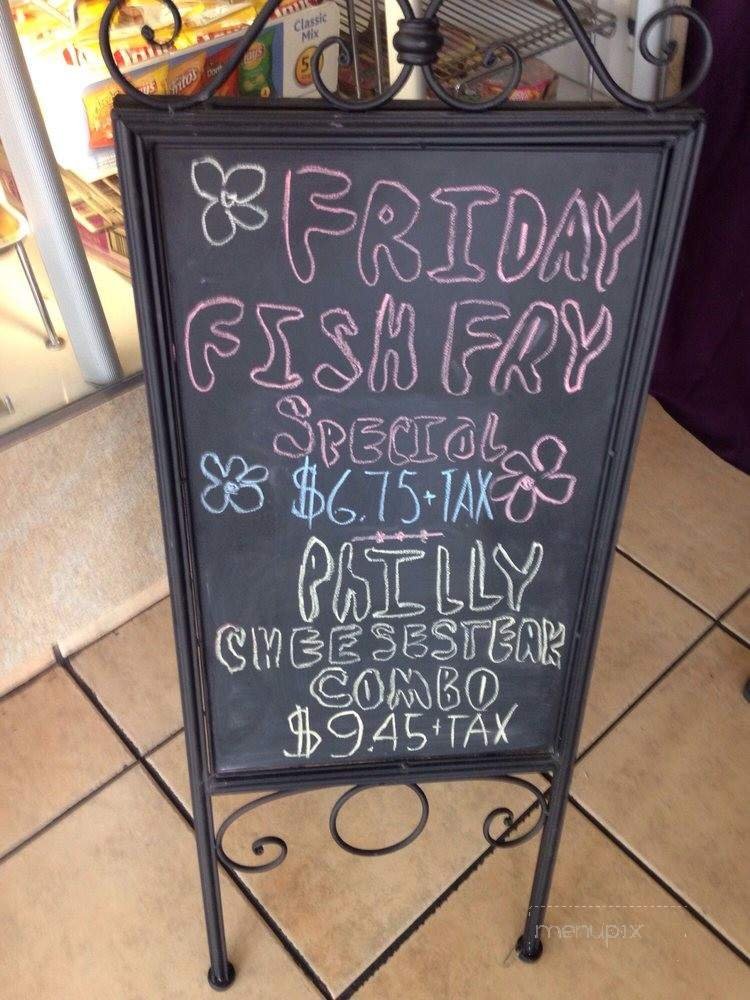 Classic
Mix
50
FRIDAY
FISH FRY
SPECIAL
$6.75+TAX
PhILLY
CHEESESTEAK
COMBO
$9.45+TAX
menupix